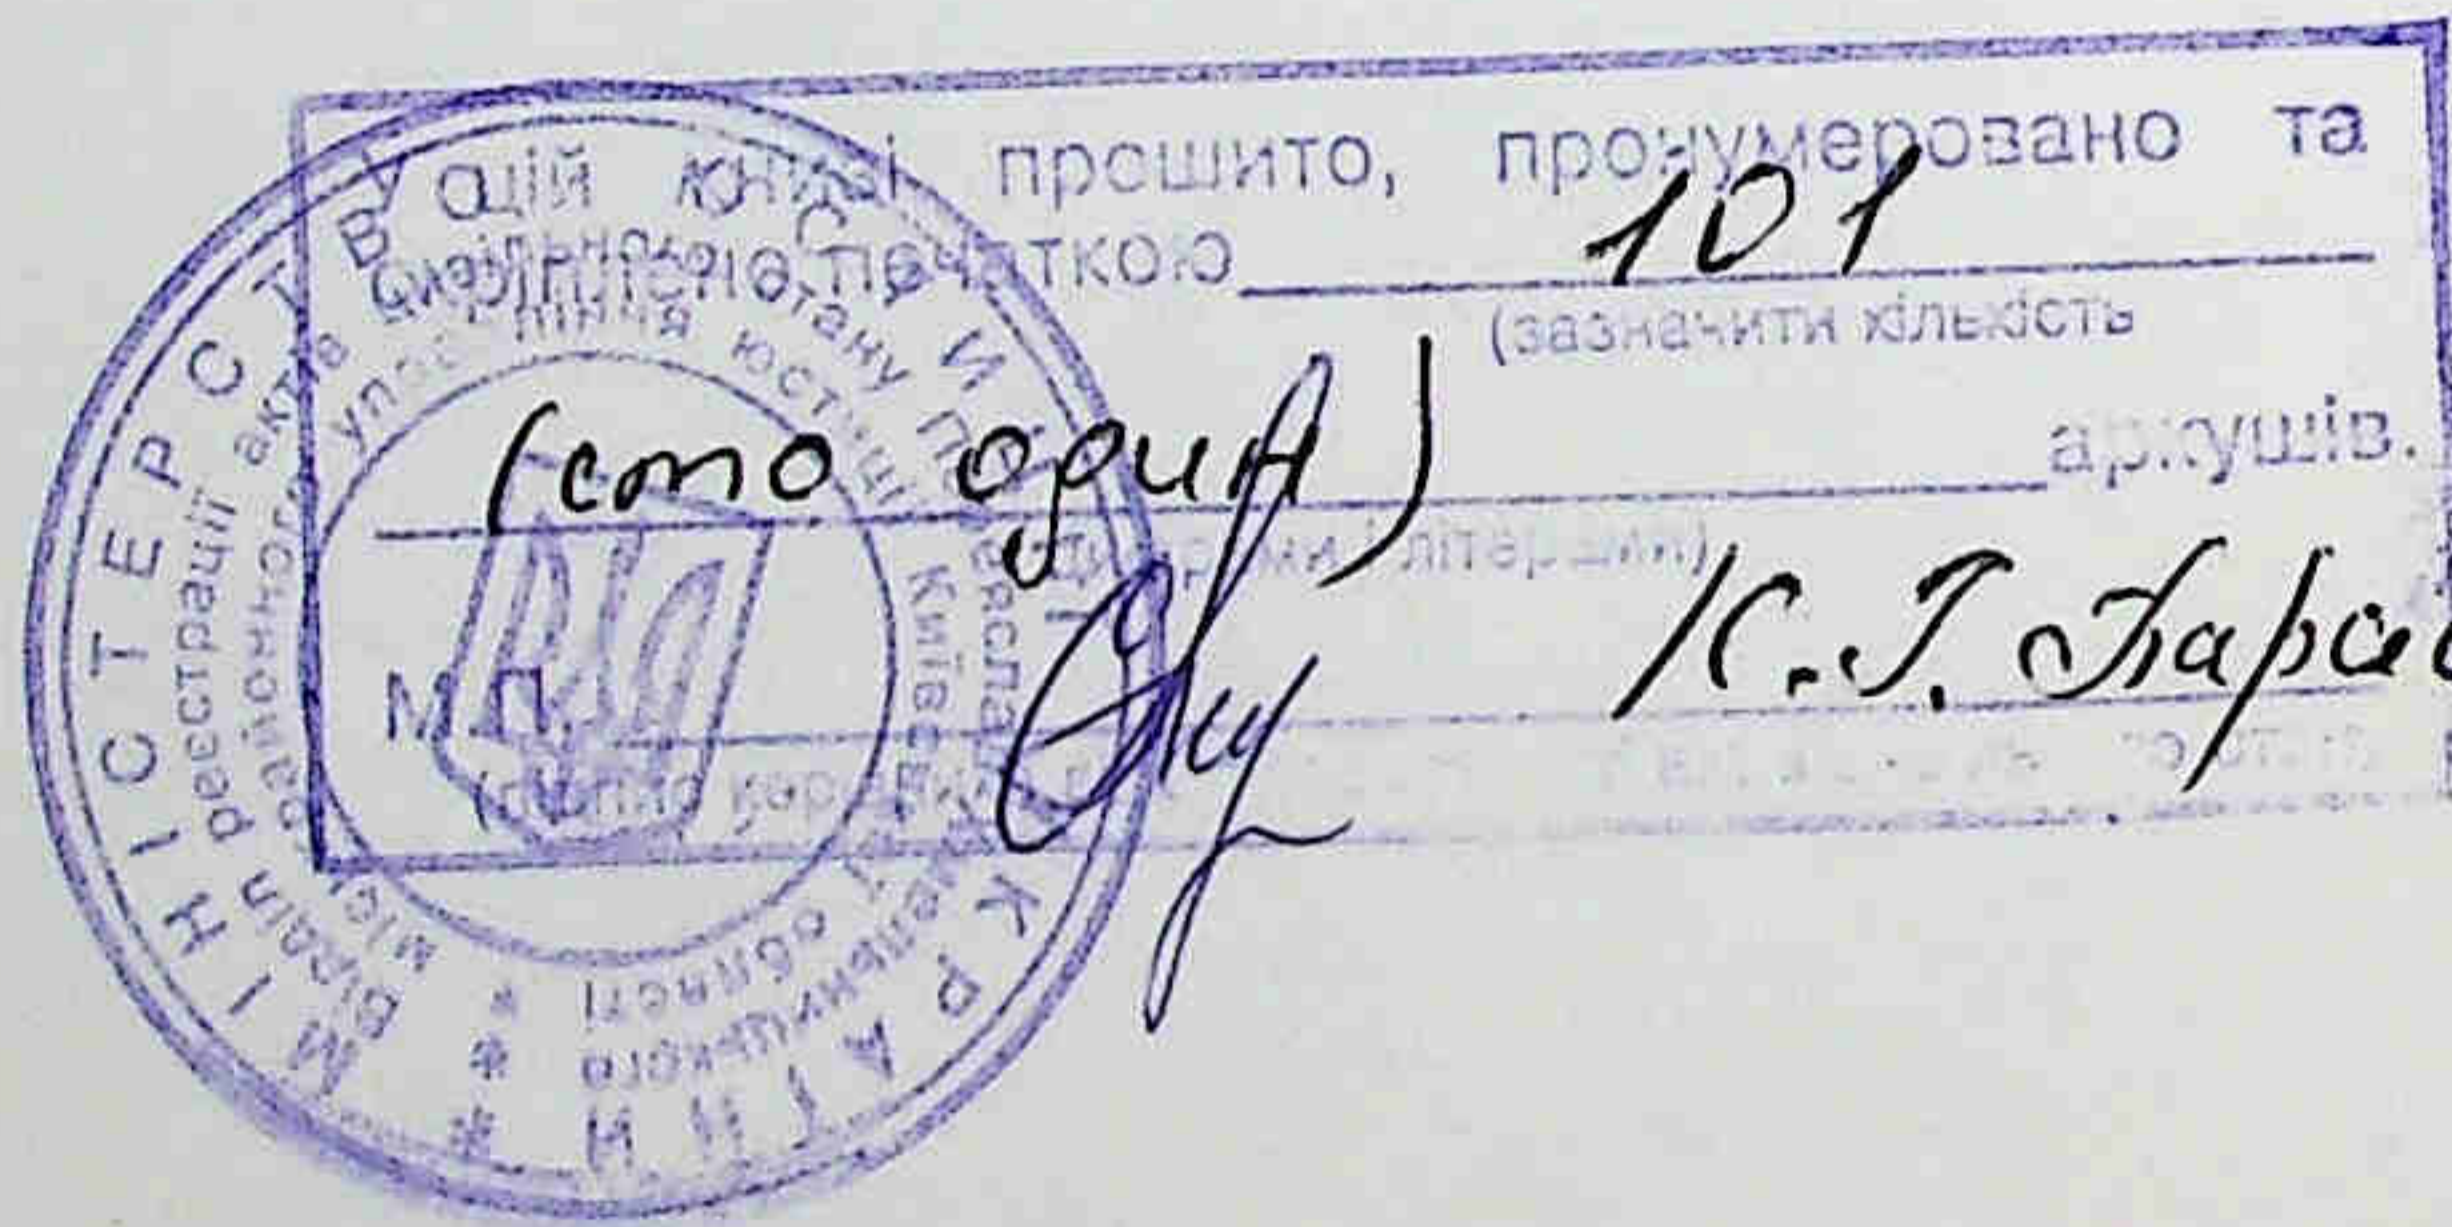 У цій книзі прошито, пронумеровано та
скріплено печаткою 101
(зазначити кількість
(сто один) аркушів.
цифрами і літерами)
М.П. К.Г.
(підпис
МІНІСТЕРСТВО ЮСТИЦІЇ УКРАЇНИ
Відділ реєстрації актів цивільного стану Переяслав-Хмельницького
міськрайонного управління юстиції Київської області